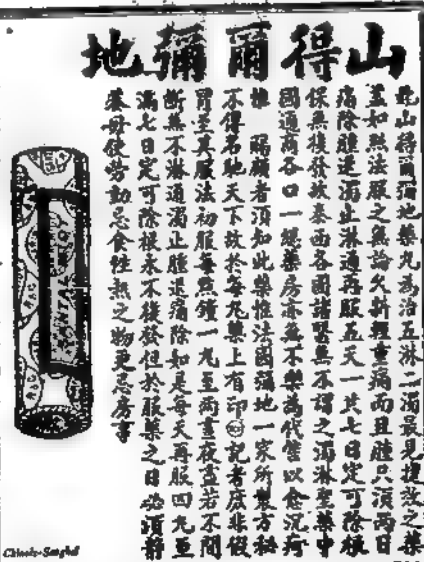 山得爾彌地
此山得爾彌地藥丸為治五淋二濁最見捷效之藥
蓋如照法服之無論久新輕重痛而且腫只須兩日
痛除腫退濁止淋通再服五天一共七日定可除根
保無後發故泰西各國諸醫無不謂之濁淋聖藥中
國通商各口一總藥房亦無不樂為代售以愈沉疴
惟 賜顧者須知此藥惟法國彌地一家所製方秘
不得名馳天下故於每丸藥上有印 記者庶非假
冒至其服法初服每點鐘一丸至兩晝夜盡若不間
斷無不淋通濁止腫退痛除如是每天再服四丸至
滿七日定可除根永不後發但於服藥之日必須靜
養毋使勞動忌食性熱之物更忌房事
SANTAL MIDY
Chinois-Sanghai